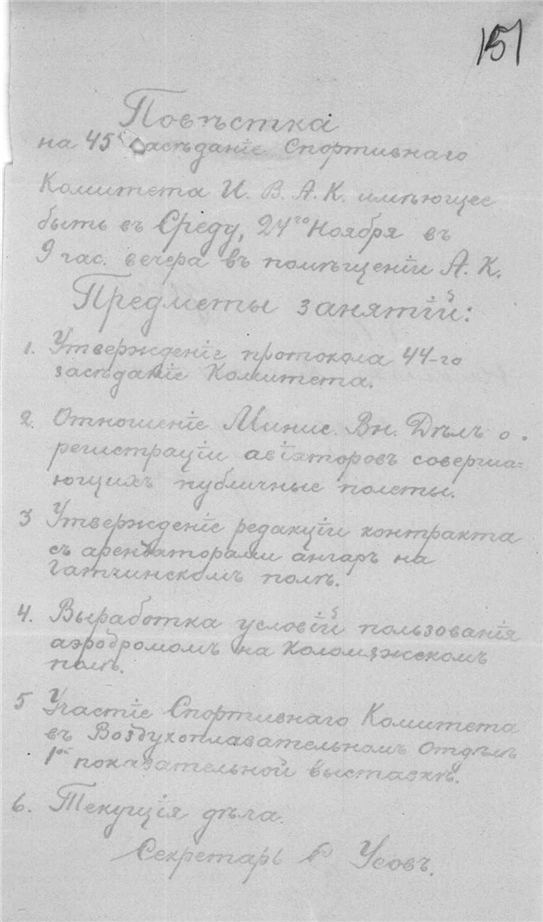 151
Повѣстка
на 45е засѣданіе Спортивнаго
Комитета И. В. А. К. имѣющее
быть въ Среду, 24го Ноября въ
9 час. вечера въ помѣщеніи А. К.
Предметы занятій:
1. Утвержденіе протокола 44-го
засѣданіе Комитета.
2. Отношеніе Минис. Вн. Дѣлъ о
регистраціи авіяторовъ соверша=
ющихъ публичные полеты.
3 Утвержденіе редакціи контракта
съ арендаторами ангаръ на
Гатчинскомъ полѣ.
4. Выработка условій пользованія
аэродромомъ на Коломяжскомъ
полѣ.
5 Участіе Спортивнаго Комитета
въ Воздухоплавательномъ Отдѣлѣ
1ой показательной выставкѣ.
6. Текущія дѣла.
Секретарь Усовъ.